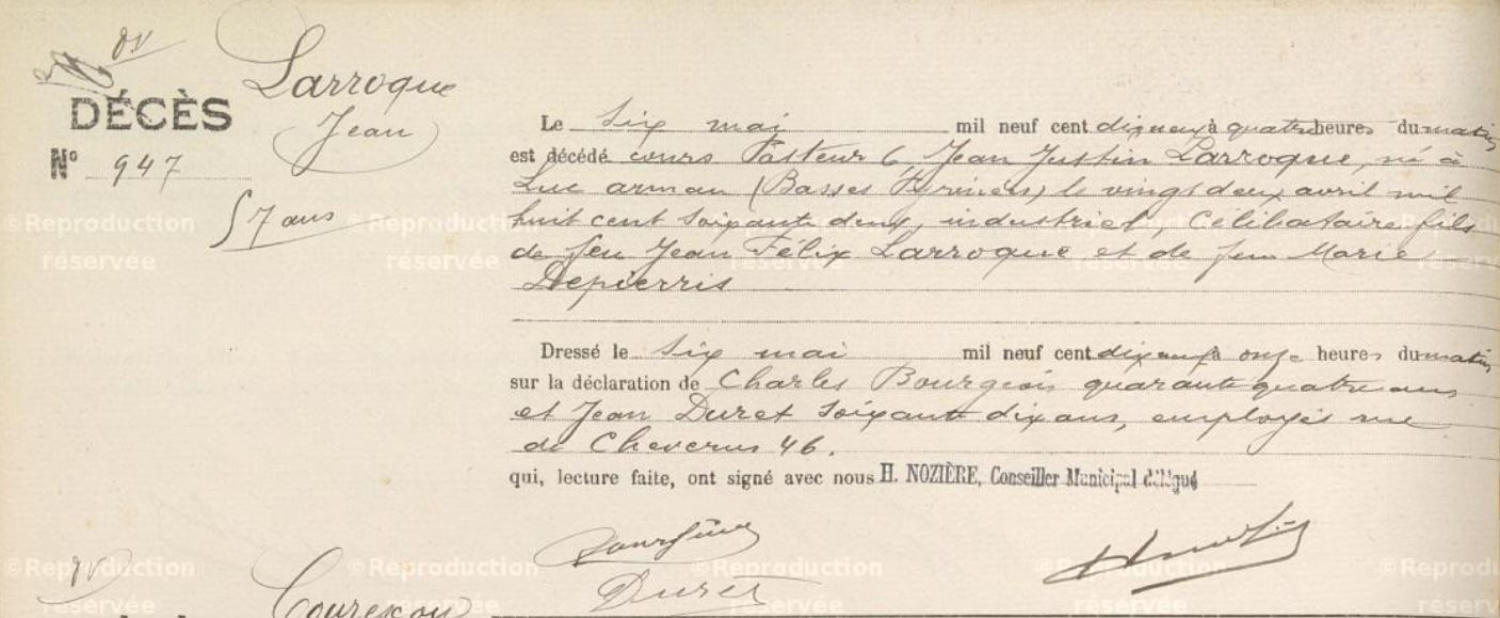 Larroque
DÉCÈS
Jean
N° 947
57 ans
Le six mai mil neuf cent dix neuf à quatre heures du matin
est décédé cours Pasteur 6, Jean Justin Larroque, né à
Luc arman (Basses Pyrénées) le vingt deux avril mil
huit cent soixante deux, industriel, Célibataire fils
de feu Jean Félix Larroque et de feue Marie
Depierris
Dressé le six mai mil neuf cent dix neuf à onze heures du matin
sur la déclaration de Charles Bourgeois quarante quatre ans
et Jean Duret soixante dix ans, employés rue
de Cheverus 46.
qui, lecture faite, ont signé avec nous H. NOZIÈRE, Conseiller Municipal délégué
Duret
©Reproduction réservée